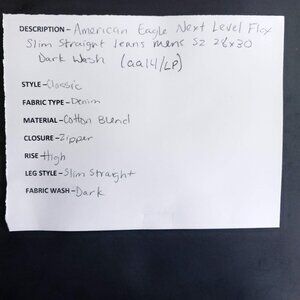 DESCRIPTION – American Eagle Next Level Flex
Slim Straight Jeans mens SZ 28x30
Dark Wash (aa14/LP)
STYLE – Classic
FABRIC TYPE – Denim
MATERIAL – Cotton Blend
CLOSURE – Zipper
RISE – High
LEG STYLE – Slim Straight
FABRIC WASH – Dark